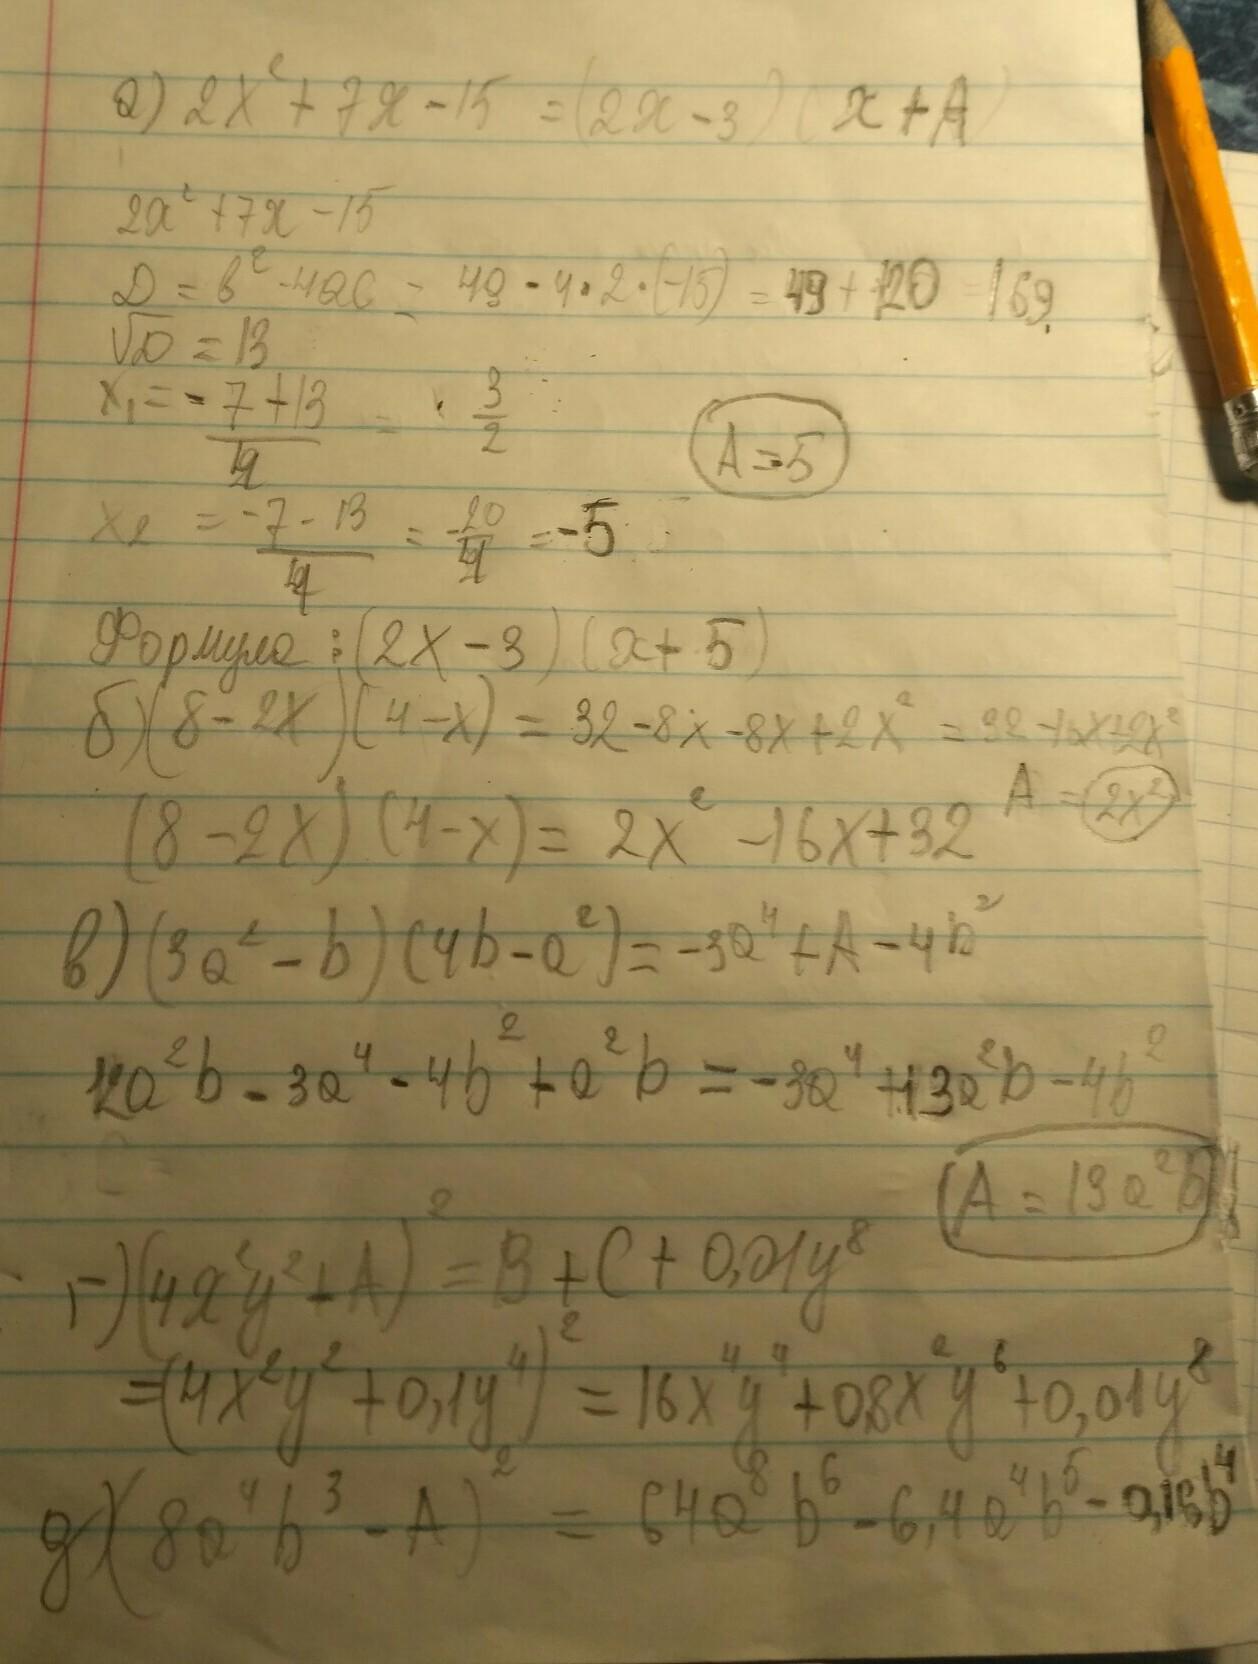 а) 2x² + 7x - 15 = (2x - 3) (x + A)
2x² + 7x - 15
D = b² - 4ac = 49 - 4 · 2 · (-15) = 49 + 120 = 169
√D = 13
x₁ = (-7 + 13)/4 = 3/2
A = 5
x₂ = (-7 - 13)/4 = -20/4 = -5
Формула : (2x - 3) (x + 5)
б) (8 - 2x) (4 - x) = 32 - 8x - 8x + 2x² = 32 - 16x + 2x²
A = 2x²
(8 - 2x) (4 - x) = 2x² - 16x + 32
в) (3a² - b) (4b - a²) = -3a⁴ + A - 4b²
12a²b - 3a⁴ - 4b² + a²b = -3a⁴ + 13a²b - 4b²
A = 13a²b
г) (4x²y² + A)² = B + C + 0,01y⁸
= (4x²y² + 0,1y⁴)² = 16x⁴y⁴ + 0,8x²y⁶ + 0,01y⁸
д) (8a⁴b³ - A)² = 64a⁸b⁶ - 6,4a⁴b⁵ - 0,16b⁴